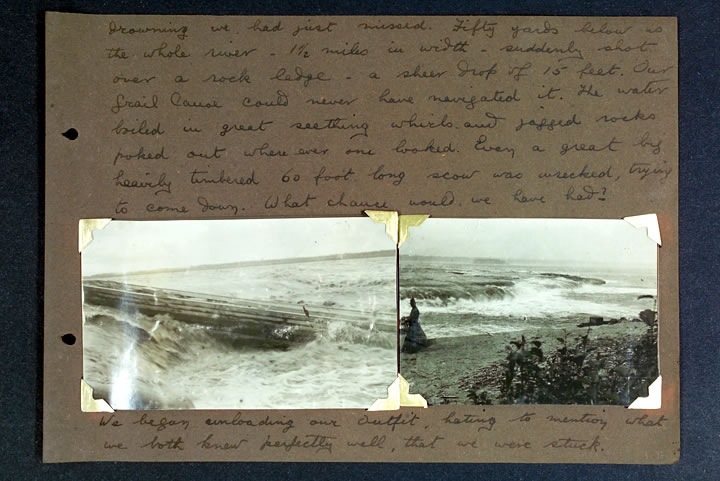 drowning we had just missed. Fifty yards below us
the whole river - 1½ miles in width - suddenly shot
over a rock ledge - a sheer drop of 15 feet. Our
frail Canoe could never have navigated it. The water
boiled in great seething whirls and jagged rocks
poked out where ever one looked. Even a great big
heavily timbered 60 foot long scow was wrecked, trying
to come down. What chance would we have had?
We began unloading our outfit, hating to mention what
we both knew perfectly well, that we were stuck.